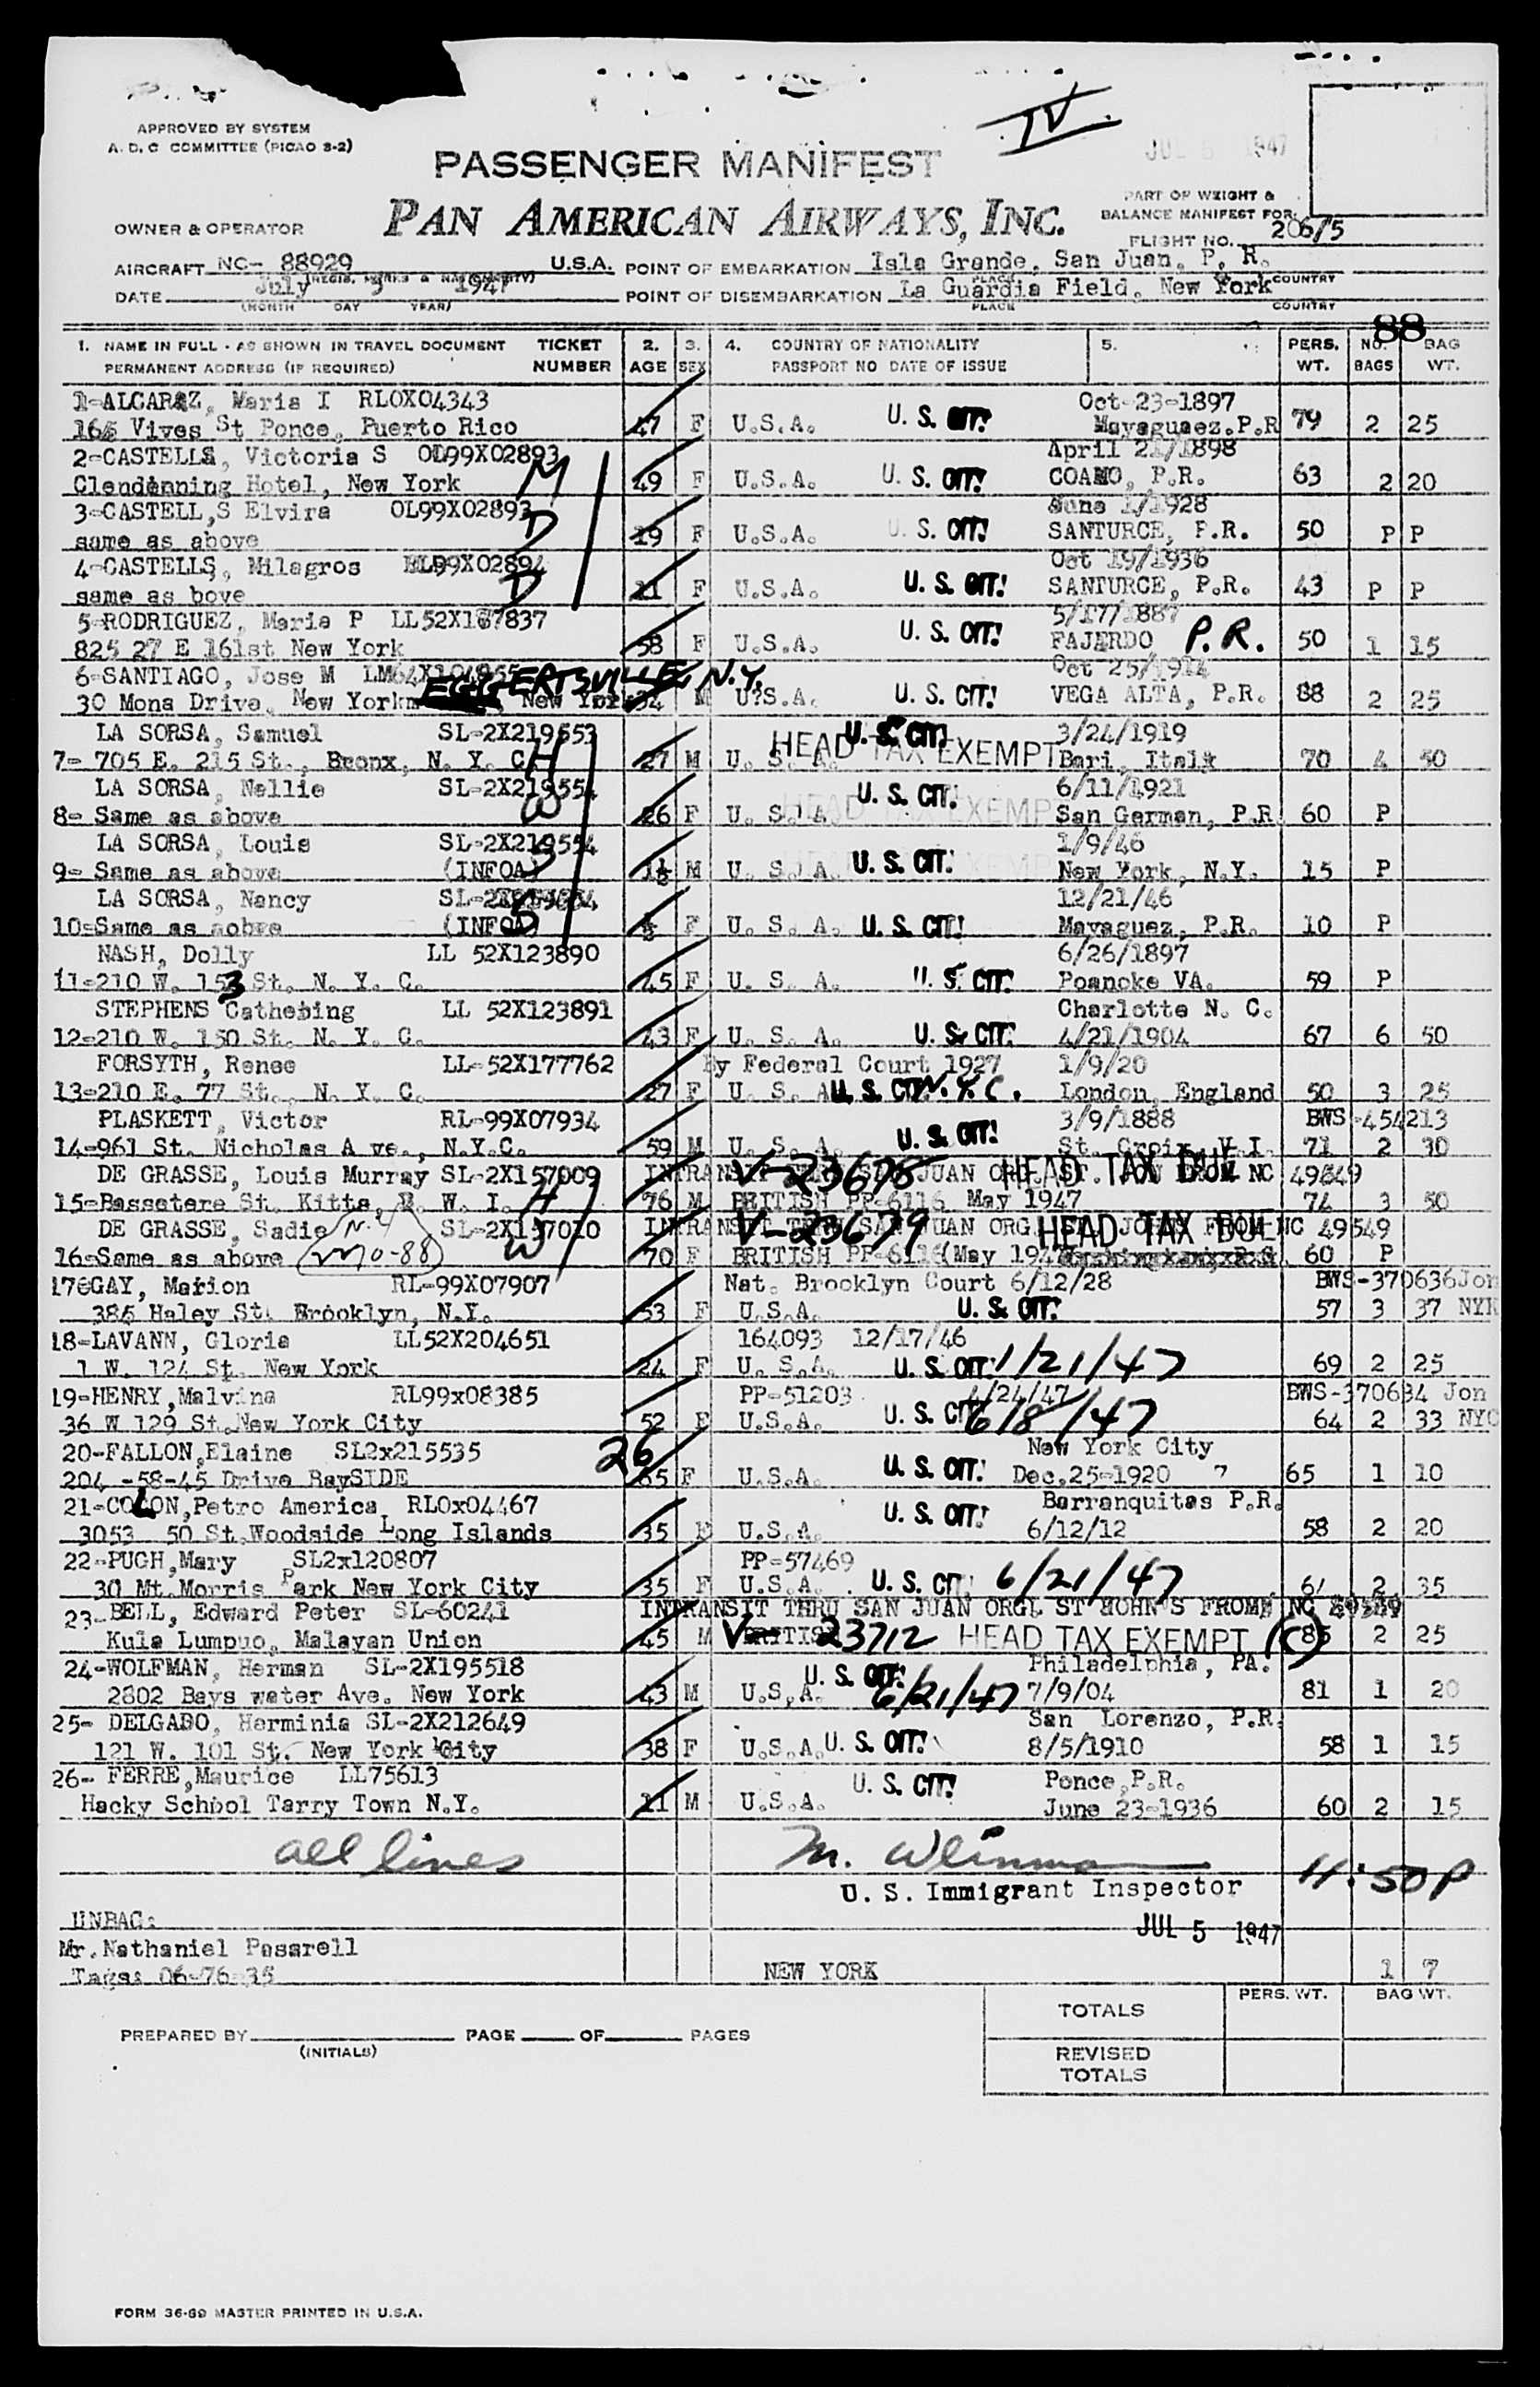 IV
APPROVED BY SYSTEM
A. D. C COMMITTEE (PICAO 8-2)
JUL 5 1947
PASSENGER MANIFEST
PAN AMERICAN AIRWAYS, INC.
PART OF WEIGHT &
BALANCE MANIFEST FOR
OWNER & OPERATOR
FLIGHT NO. 206/5
AIRCRAFT NC- 88929 U.S.A. POINT OF EMBARKATION Isla Grande, San Juan, P. R.
DATE July 5 1947 POINT OF DISEMBARKATION La Guardia Field, New York
(MONTH DAY YEAR) PLACE COUNTRY
88
1. NAME IN FULL - AS SHOWN IN TRAVEL DOCUMENT TICKET 2. 3. 4. COUNTRY OF NATIONALITY 5. PERS. NO. BAG
PERMANENT ADDRESS (IF REQUIRED) NUMBER AGE SEX PASSPORT NO DATE OF ISSUE WT. BAGS WT.
1-ALCARAZ, Maria I RLOX04343 Oct-23-1897
165 Vives St Ponce, Puerto Rico 47 F U.S.A. U. S. CIT! Mayaguaez.P.R 79 2 25
2-CASTELLS, Victoria S OL99X02893 M April 21/1898
Clendenning Hotel, New York 49 F U.S.A. U. S. CIT! COAMO, P.R. 63 2 20
3-CASTELL,S Elvira OL99X02893 D June 1/1928
same as above 19 F U.S.A. U. S. CIT! SANTURCE, P.R. 50 P P
4-CASTELLS, Milagros 99X02894 D Oct 19/1936
same as bove 11 F U.S.A. U. S. CIT! SANTURCE, P.R. 43 P P
5-RODRIGUEZ, Maria P LL52X167837 5/17/1887
825 27 E 161st New York 58 F U.S.A. U. S. CIT! FAJERDO P.R. 50 1 15
6-SANTIAGO, Jose M LM64X104955 EGGERTSVILLE, N.Y. Oct 25/1914
30 Mona Drive, New York New York 34 M U.S.A. U. S. CIT! VEGA ALTA, P.R. 88 2 25
LA SORSA, Samuel SL-2X219553 U. S. CIT! 3/24/1919
7- 705 E. 215 St., Bronx, N. Y. C. H 27 M U. S. A. HEAD TAX EXEMPT Bari, Italy 70 4 50
LA SORSA, Nellie SL-2X219554 U. S. CIT! 6/11/1921
8- Same as above W 26 F U. S. A. HEAD TAX EXEMPT San German, P.R. 60 P
LA SORSA, Louis SL-2X219554 S 1/9/46
9- Same as above (INFOA) 1½ M U. S. A. U. S. CIT! New York, N.Y. 15 P
LA SORSA, Nancy 12/21/46
10-Same as aobve (INFOA) D ½ F U. S. A. U. S. CIT! Mayaguez, P.R. 10 P
NASH, Dolly LL 52X123890 6/26/1897
11-210 W. 153 St. N. Y. C. 45 F U. S. A. U. S. CIT! Roanoke VA. 59 P
STEPHENS Cathebing LL 52X123891 Charlotte N. C.
12-210 W. 150 St. N. Y. C. 43 F U. S. A. U. S. CIT! 4/21/1904 67 6 50
FORSYTH, Renee LL-52X177762 By Federal Court 1927 1/9/20
13-210 E. 77 St., N. Y. C. 27 F U. S. A. U. S. CIT! N.Y.C. London, England 50 3 25
PLASKETT, Victor RL-99X07934 3/9/1888 BWS-454213
14-961 St. Nicholas A ve., N.Y.C. 59 M U. S. A. U. S. CIT! St. Croix, V.I. 71 2 30
DE GRASSE, Louis Murray SL-2X157009 INTRANSIT THRU SAN JUAN ORG. ST. JOHN FROM NC 49549 V-23678 HEAD TAX DUE
15-Bassetere St. Kitts, B. W. I. H 76 M BRITISH PP-6116 May 1947 74 3 50
DE GRASSE, Sadie SL-2X157010 INTRANSIT THRU SAN JUAN ORG. ST. JOHNS FROM NC 49549 V-23679 HEAD TAX DUE
16-Same as above W 70 F BRITISH PP-6116(May 1947 60 P
17-GAY, Marion RL-99X07907 Nat. Brooklyn Court 6/12/28 BWS-370636Jon
385 Haley St. Brooklyn, N.Y. 53 F U.S.A. U. S. CIT! 57 3 37 NYK
18-LAVANN, Gloria LL52X204651 164093 12/17/46
1 W. 124 St. New York 24 F U. S.A. U. S. CIT! 1/21/47 69 2 25
19-HENRY,Malvina RL99x08385 PP-51203 4/24/47 BWS-370634 Jon
36 W 129 St.New York City 52 F U.S.A. U. S. CIT! 6/8/47 64 2 33 NYC
20-FALLON,Elaine SL2x215535 26 New York City
204 -58-45 Drive BaySIDE 65 F U.S.A. U. S. CIT! Dec.25-1920 65 1 10
21-COLON,Petro America RLOx04467 U. S. CIT! Barranquitas P.R.
3053 50 St.Woodside Long Islands 35 F U.S.A. 6/12/12 58 2 20
22-PUGH,Mary SL2x120807 PP-57469
30 Mt.Morris Park New York City 35 F U.S.A. U. S. CIT! 6/21/47 2 35
23-BELL, Edward Peter SL-60241 INTRANSIT THRU SAN JUAN ORGL ST JOHN'S FROM NC 49549
Kula Lumpuo, Malayan Union 45 M BRITISH V-23712 HEAD TAX EXEMPT (C) 85 2 25
24-WOLFMAN, Herman SL-2X195518 U. S. CIT! Philadelphia, PA.
2802 Bays water Ave. New York 43 M U.S.A. 6/21/47 7/9/04 81 1 20
25- DELGADO, Herminia SL-2X212649 San Lorenzo, P.R.
121 W. 101 St. New York City 38 F U.S.A. U. S. CIT! 8/5/1910 58 1 15
26- FERRE,Maurice LL75613 U. S. CIT! Ponce,P.R.
Hacky School Tarry Town N.Y. 11 M U.S.A. June 23-1936 60 2 15
all lines
U. S. Immigrant Inspector 11:50P
UNBAG:
JUL 5 1947
Mr.Nathaniel Pasarell
Tags: 06-76-35 NEW YORK 1 7
TOTALS PERS. WT. BAG WT.
PREPARED BY PAGE OF PAGES
(INITIALS)
REVISED
TOTALS
FORM 36-69 MASTER PRINTED IN U.S.A.